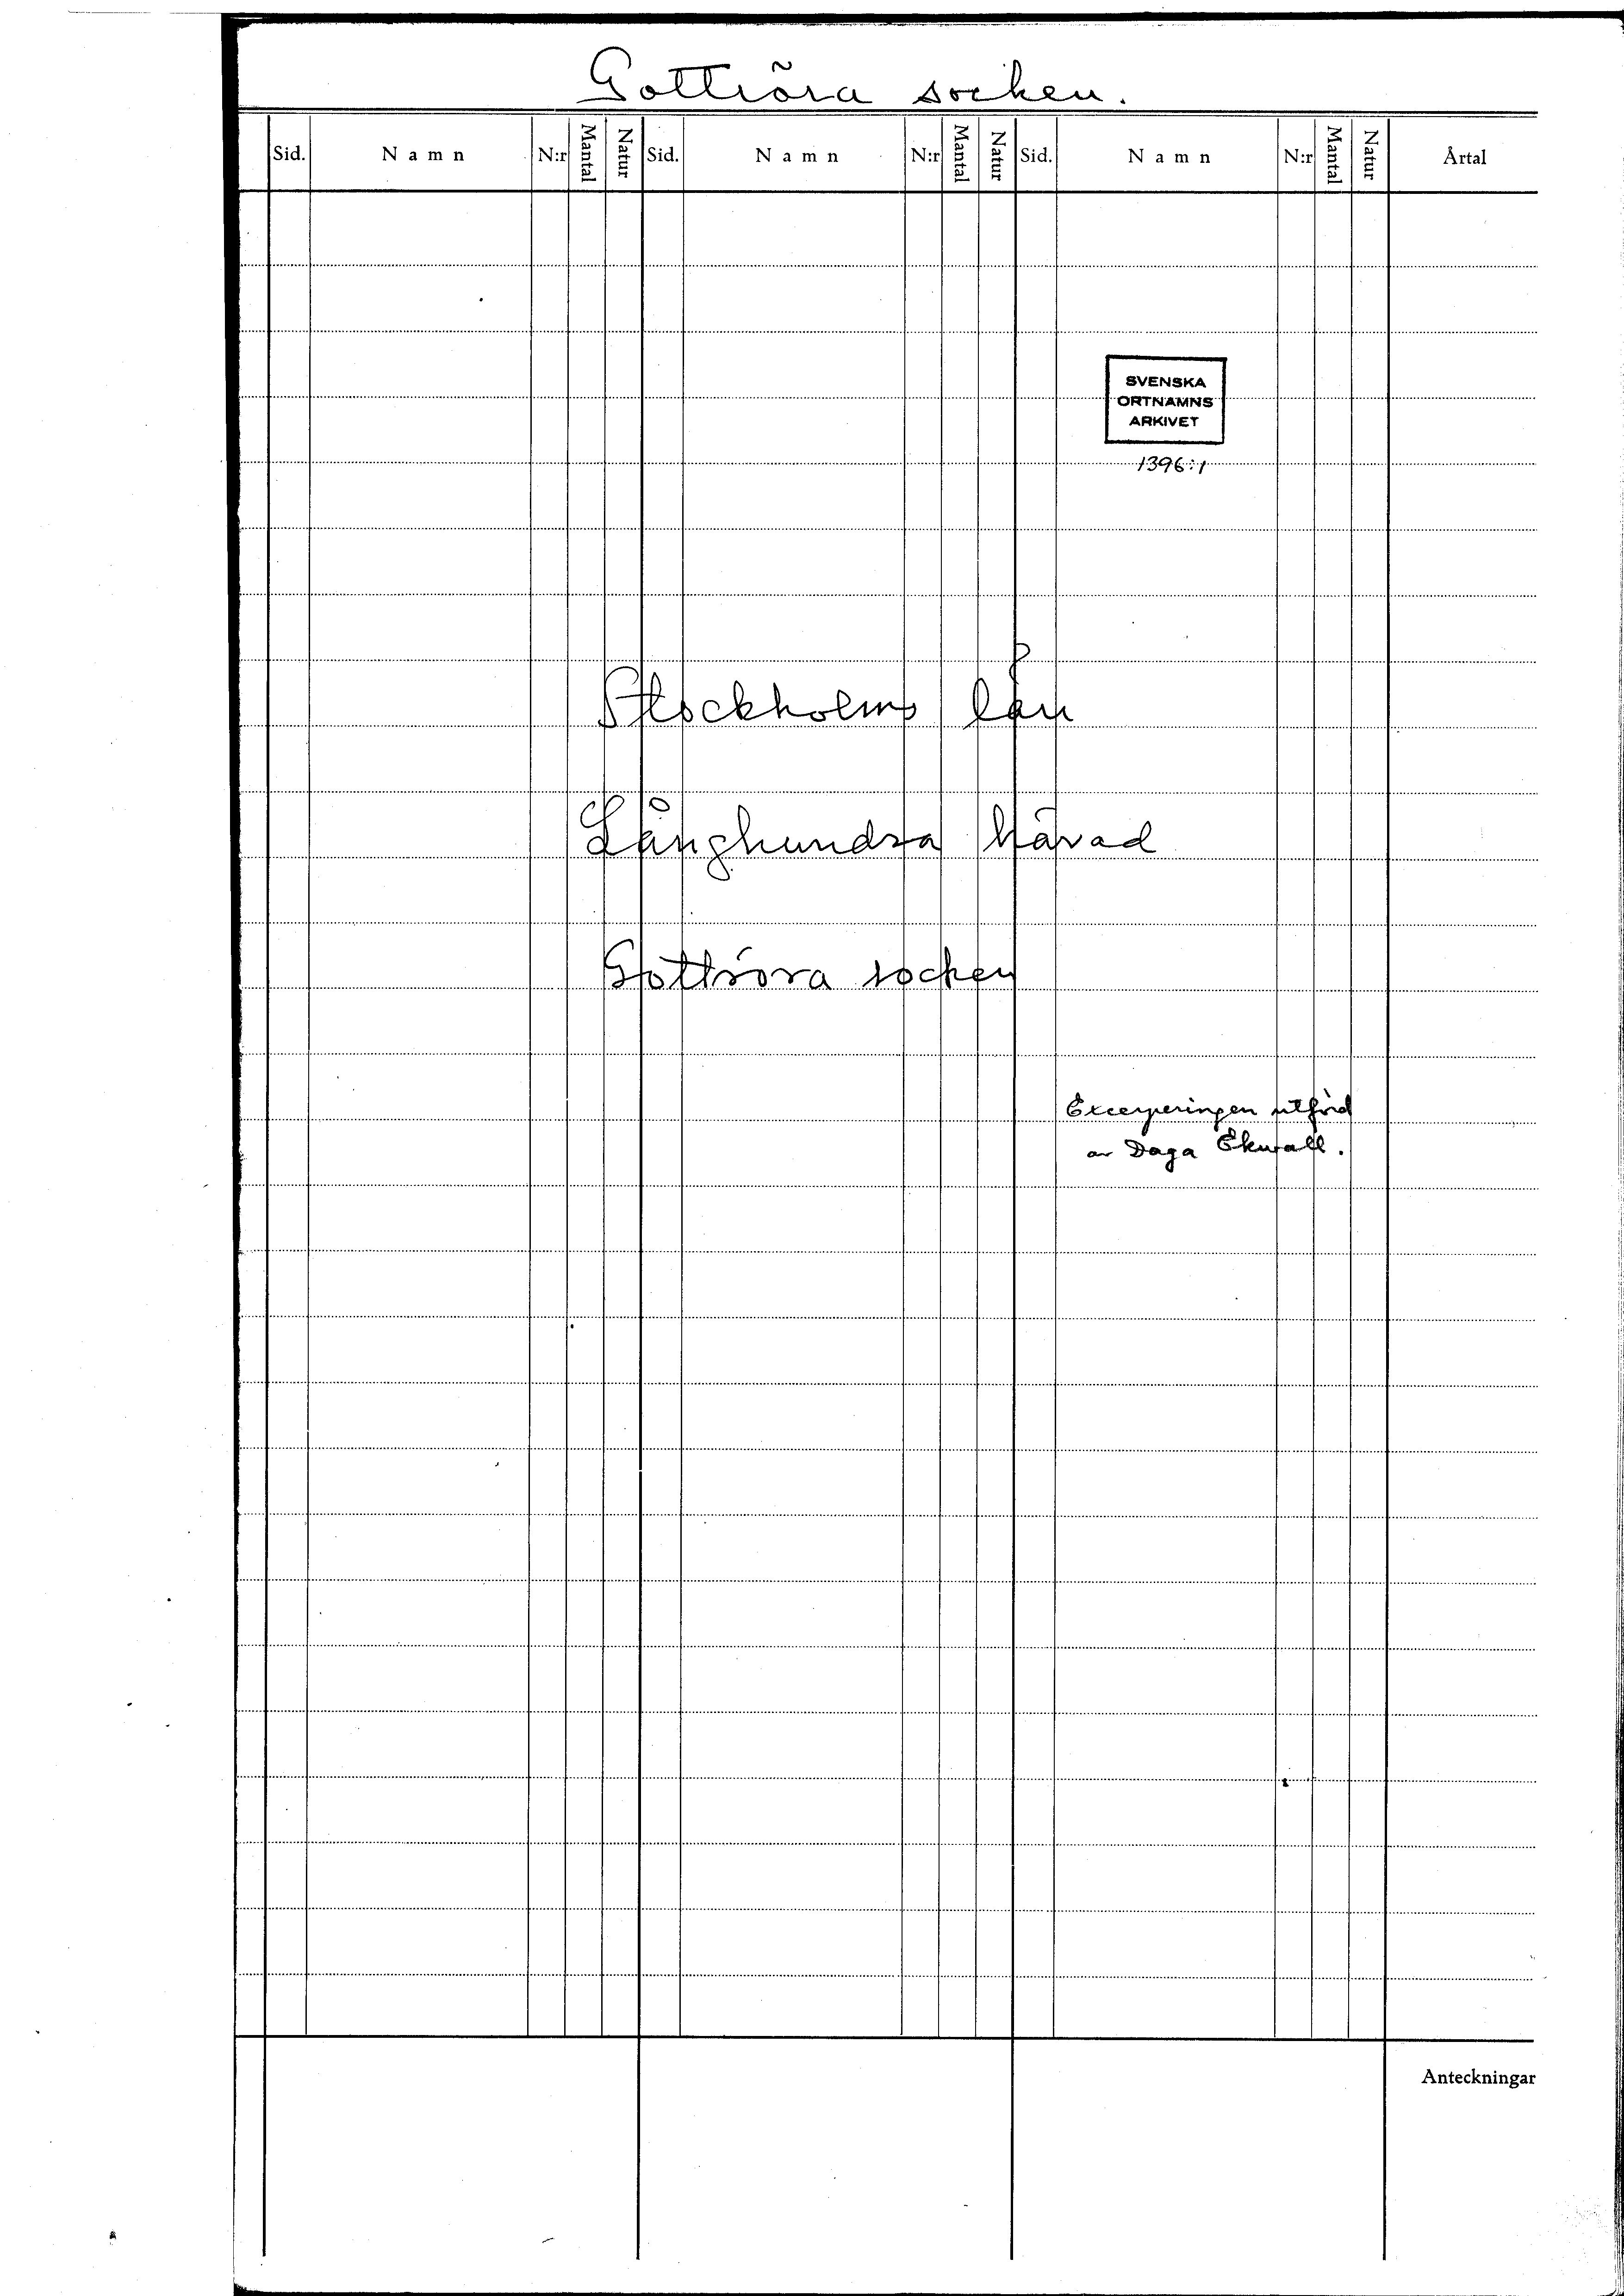 Gottröra socken.
Sid. Namn N:r Mantal Natur Sid. Namn N:r Mantal Natur Sid. Namn N:r Mantal Natur Årtal
SVENSKA
ORTNAMNS
ARKIVET
1396:1
Stockholms län
Långhundra härad
Gottröra socken
Excerperingen utförd
av Daga Ekwall.
Anteckningar